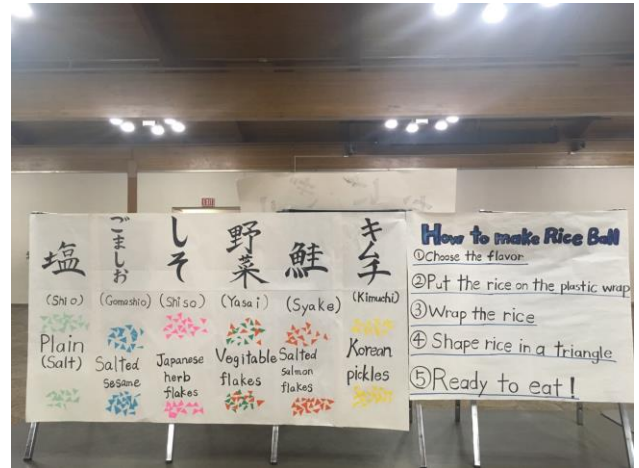 EXIT
塩
(Shio)
Plain
(Salt)
ごましお
(Gomashio)
Salted
sesame
しそ
(Shiso)
Japanese
herb
flakes
野菜
(Yasai)
Vegitable
flakes
鮭
(Syake)
Salted
salmon
flakes
キムチ
(Kimuchi)
Korean
pickles
How to make Rice Ball
①Choose the flavor
②Put the rice on the plastic wrap
③Wrap the rice
④Shape rice in a triangle
⑤Ready to eat!